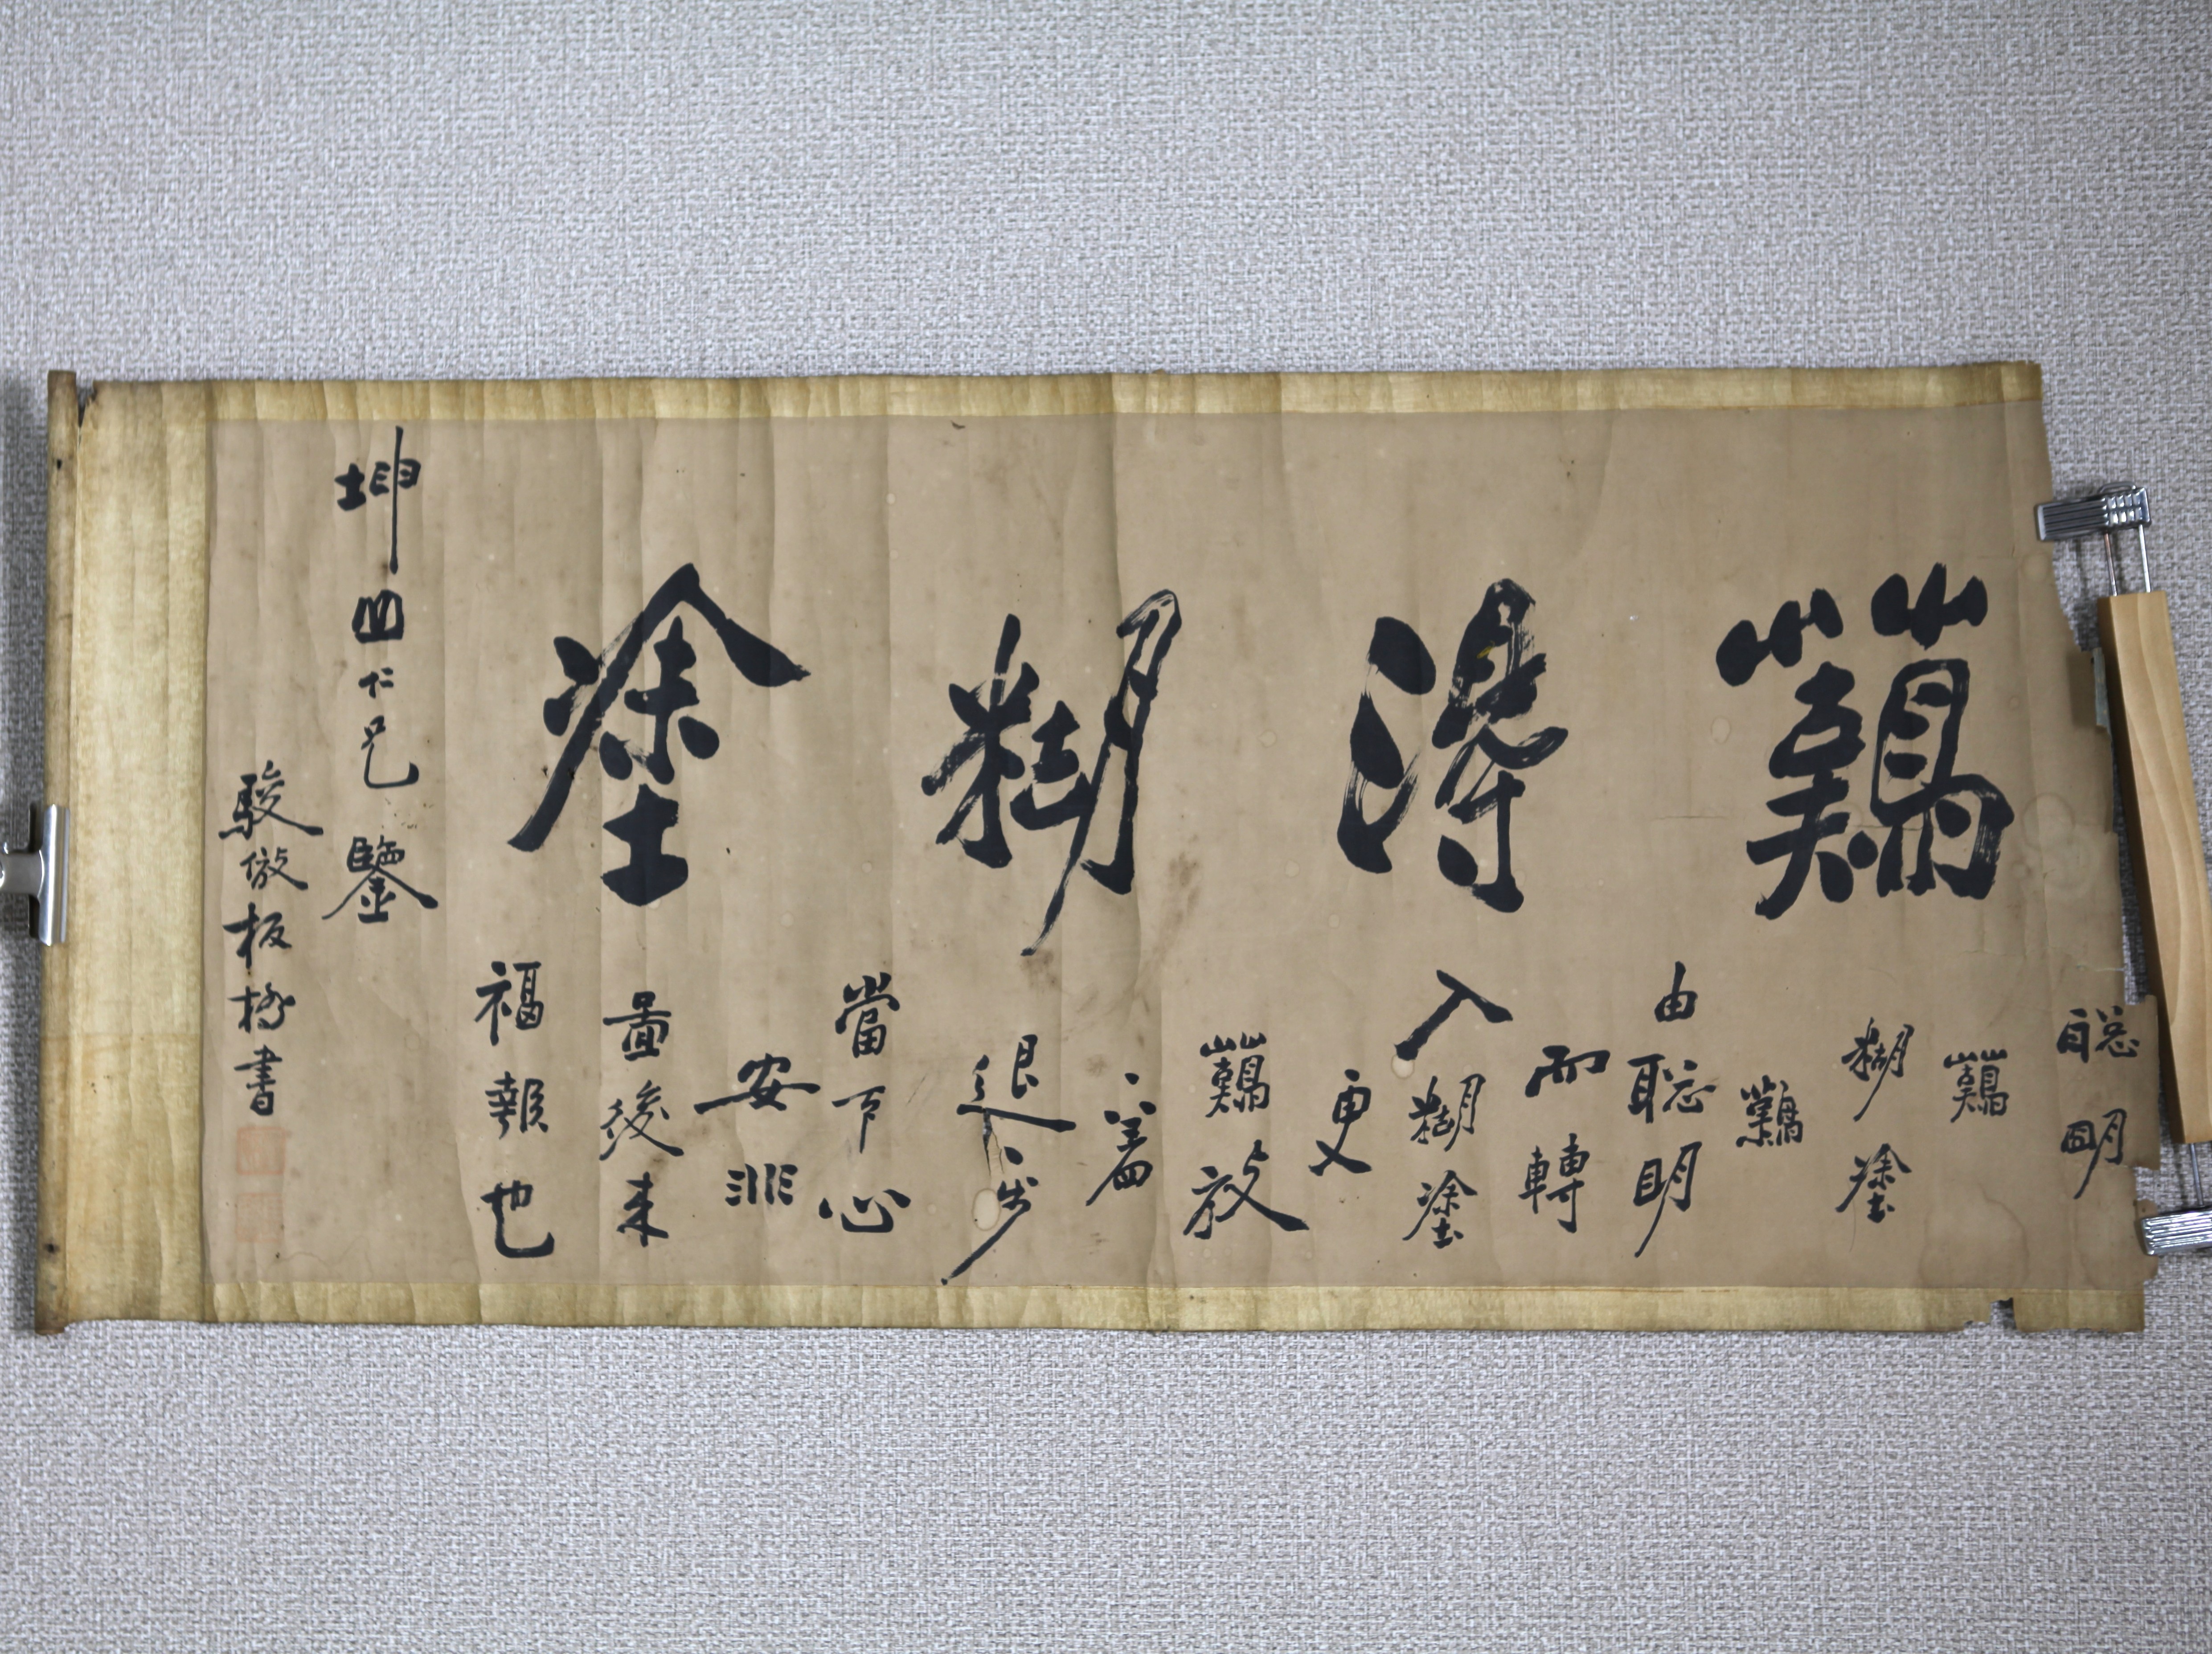 難得糊塗
聰明
難
糊塗
難
由聰明
而轉
入糊塗
更
難放
一着
退一步
當下心
安非
圖後来
福報也
坤 仁兄鑒
駿倣板橋書